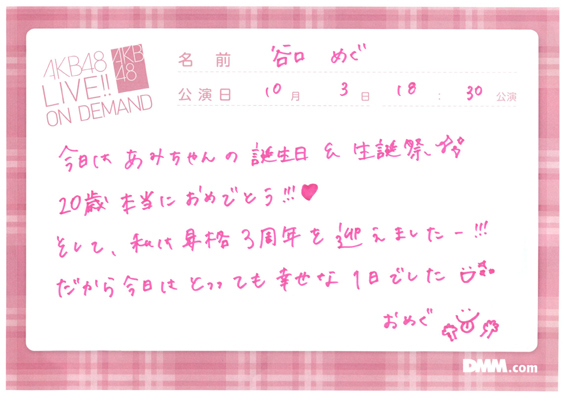 AKB48
LIVE!!
ON DEMAND
AKB
48
名前 谷口 めぐ
公演日 10月 3日 18:30公演
今日は あみちゃんの 誕生日 & 生誕祭
20歳 本当に おめでとう!!!♥
そして、私は 昇格 3周年を 迎えましたー!!!
だから 今日は とっっても 幸せな 1日でした
おめぐ
DMM.com